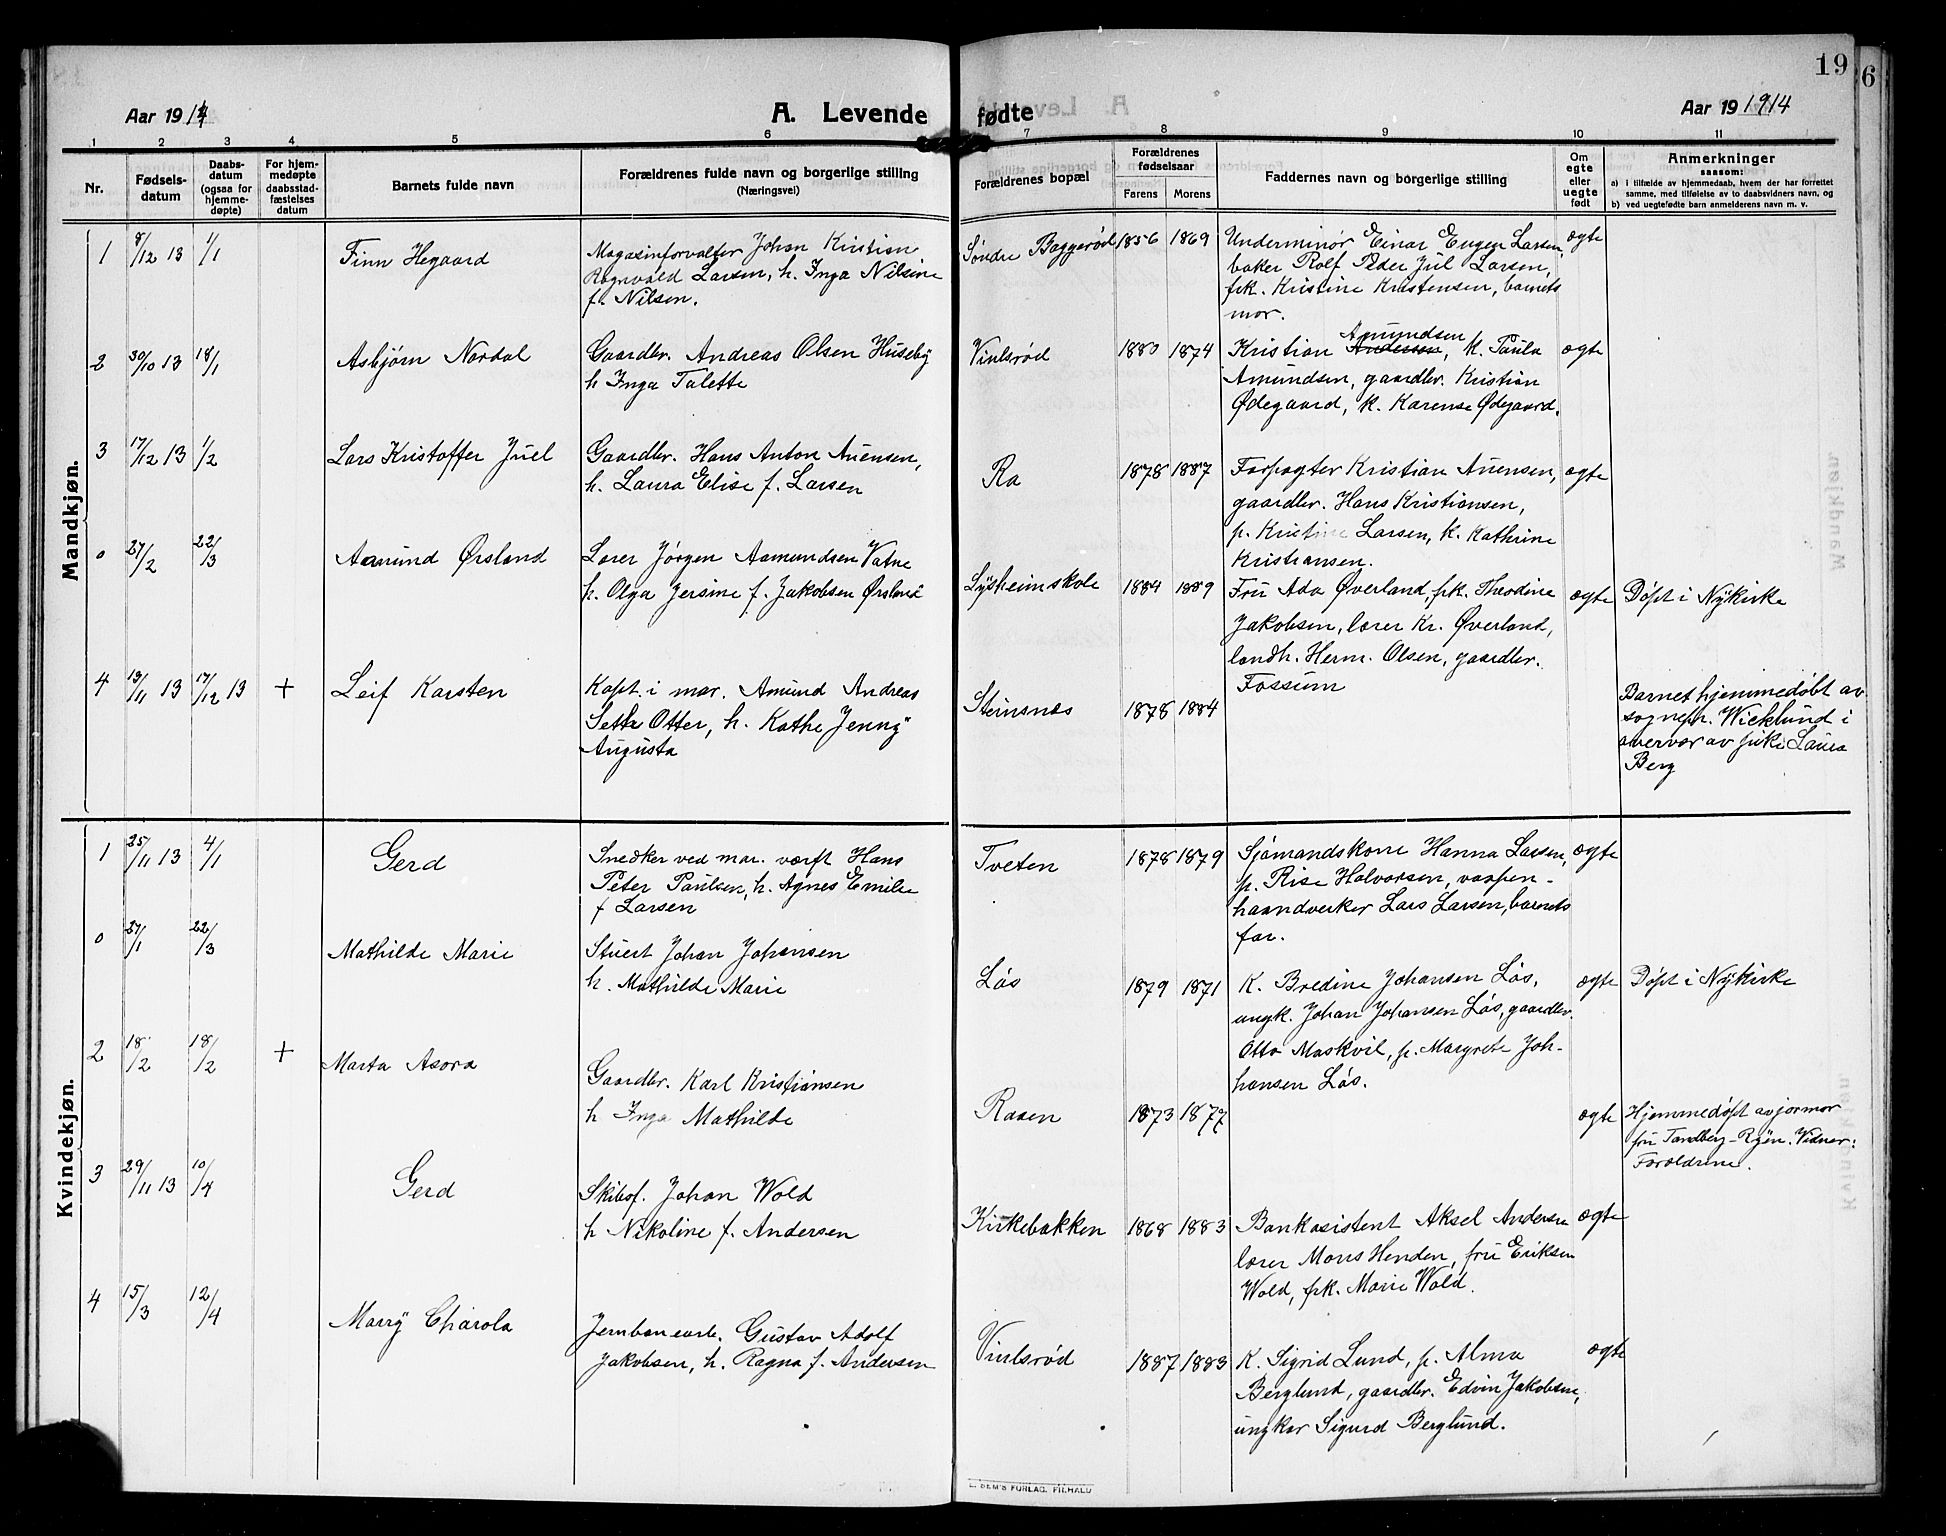 19
6
Aar 1914
A. Levende fødte
Aar 19 1914
1 2 3 4 5 6 7 8 9 10 11
Nr.
Fødsels-
datum
Daabs-
datum
(ogsaa for
hjemme-
døpte)
For hjem-
medøpte
daabsstad-
fæstelses
datum
Barnets fulde navn
Forældrenes fulde navn og borgerlige stilling
(Næringsvei)
Forældrenes bopæl
Forældrenes
fødselsaar
Farens Morens
Faddernes navn og borgerlige stilling
Om
egte
eller
uegte
født
Anmerkninger
saasom:
a) i tilfælde av hjemmedaab, hvem der har forrettet
samme, med tilføielse av to daabsvidners navn, og
b) ved uegtefødte barn anmelderens navn m. v.
Mandkjøn.
1 8/12 13 1/1 Finn Hegaard
Magasinforvalter Johan Kristian
Ragnvald Larsen, h. Inga Nilsine
f. Nilsen.
Søndre Baggerød 1856 1869
Underminør Einar Eugen Larsen,
baker Rolf Peder Jul Larsen,
frk. Kristine Kristensen, barnets
mor.
egte
2 30/10 13 18/1 Asbjørn Nordal
Gaardbr. Andreas Olsen Huseby
h Inga Talette
Vinlsrød 1880 1874
Amundsen
Kristian Andersen, k. Paula
Amundsen, gaardbr. Kristian
Ødegaard, k. Karense Ødegaard.
egte
3 17/12 13 1/2 Lars Kristoffer Juel
Gaardbr. Hans Anton Auensen,
h. Laura Elise f. Larsen
Ra 1878 1887
Forpagter Kristian Auensen,
gaardbr. Hans Kristiansen,
p. Kristine Larsen, k. Kathrine
Kristiansen.
egte
0 27/2 22/3 Aamund Ørsland
Lærer Jørgen Aamundsen Vatne
h. Olga Jersine f. Jakobsen Ørsland
Lysheimskole 1884 1889
Fru Ada Øverland, frk. Theodine
Jakobsen, lærer Kr. Øverland,
landh. Herm. Olsen, gaardbr.
Fossum
egte
Døpt i Nykirke
4 13/11 13 17/12 13 + Leif Karsten
Kapt. i mar. Amund Andreas
Seth Otter, h. Kathe Jenny
Augusta
Steinsnes 1878 1884
Barnet hjemmedøbt av
sognepr. Wicklund i
overvær av frk. Laura
Berg
Kvindekjøn.
1 25/11 13 4/1 Gerd
Snedker ved mar. værft Hans
Peter Paulsen, h. Agnes Emilie
f Larsen
Tveten 1878 1879
Sjømandskone Hanna Larsen,
p. Rise Halvorsen, vaapen-
haandverker Lars Larsen, barnets
far.
egte
0 27/1 22/3 Mathilde Marie
Stuert Johan Johansen
h. Mathilde Marie
Løs 1879 1871
K. Bredine Johansen Løs,
ungk. Johan Johansen Løs, gaardbr.
Otto Maskvil, p. Margrete Joh-
hansen Løs.
egte
Døpt i Nykirke
2 18/2 18/2 + Marta Asora
Gaardbr. Karl Kristiansen
h Inga Mathilde
Rasen 1873 1877
egte
Hjemmedøpt av jormor
fru Tandberg-Ryen. Vidner:
Forældrene.
3 29/11 13 10/4 Gerd
Skibsf. Johan Wold
h Nikoline f. Andersen
Kirkebakken 1868 1883
Bankasistent Aksel Andersen
lærer Mons Henden, fru Eriksen
Wold, frk. Marie Wold.
egte
4 15/3 12/4 Marry Charola
Jernbanearb. Gustav Adolf
Jakobsen, h. Ragna f. Andersen
Vinlsrød 1887 1883
K. Sigrid Lund, p. Alma
Berglund, gaardbr. Edvin Jakobsen,
ungkar Sigurd Berglund.
egte
SEM'S FORLAG, FR.HALD